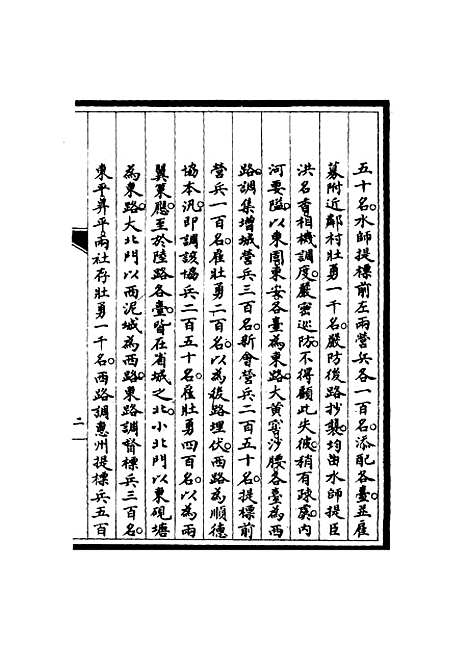 五十名。水師提標前左兩營兵各一百名。添配各臺。並雇
募附近鄰村壯勇一千名。嚴防後路抄襲。均由水師提臣
洪名香相機調度。嚴密巡防。不得顧此失彼。稍有疎虞。內
河要隘。以東固東安各臺為東路。大黃滘沙腰各臺為西
路。調集增城營兵三百名。新會營兵二百五十名。提標前
營兵一百名。雇壯勇二百名。以為後路埋伏。西路為順德
協本汛。即調該協兵二百五十名。雇壯勇四百名。以為兩
翼策應。至於陸路各臺。皆在省城之北。小北門以東硯塘
為東路。大北門以西泥城為西路。東路調督標兵三百名。
東平昇平兩社存壯勇一千名。西路調惠州提標兵五百
二